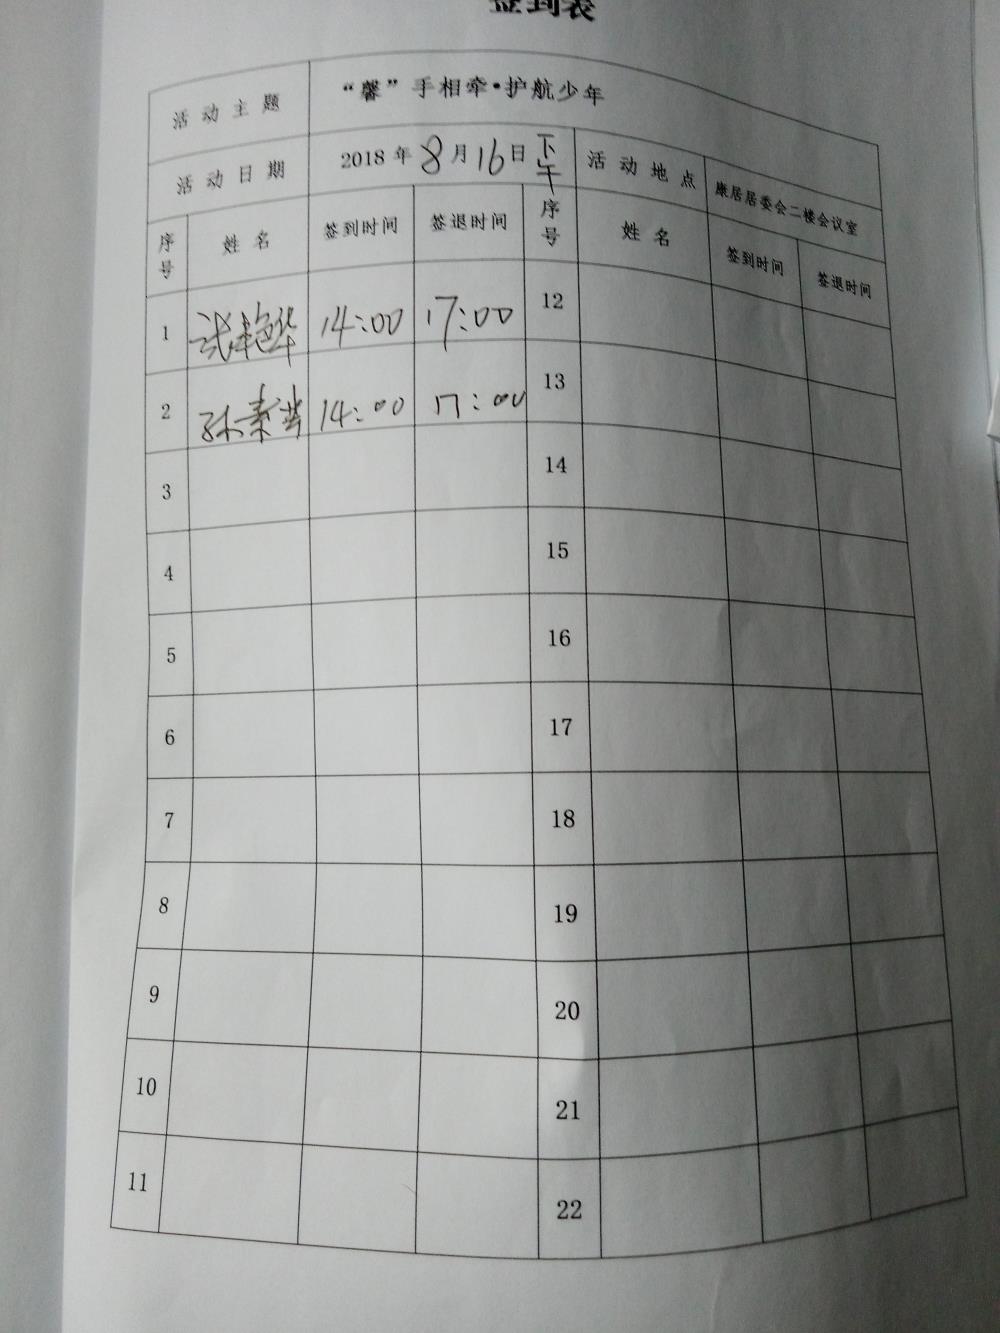 签到表
活动主题 “馨”手相牵•护航少年
活动日期 2018年8月16日下午 活动地点 康居居委会二楼会议室
序号 姓名 签到时间 签退时间 序号 姓名 签到时间 签退时间
1 14:00 17:00 12
2 孙素 14:00 17:00 13
3 14
4 15
5 16
6 17
7 18
8 19
9 20
10 21
11 22